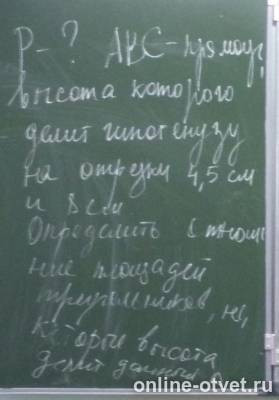 Р-? АВС-прямоуг,
высота которого
делит гипотенузу
на отрезки 4,5 см
и 8 см
Определить
ние площадей
треугольников, на,
которые высота
делит данный
online-otvet.ru